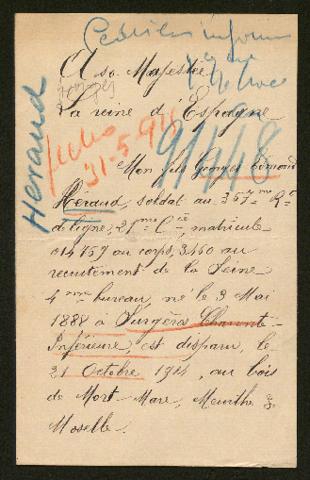 A sa Majesté
La reine d'Espagne
Heraud
fecho
31-5-915
9/4/18
Mon fils Georges Edmond
Heraud, soldat au 357me Rt
de ligne, 21me Cie, matricule
014759 au corps, 3460 au
recrutement de la Seine
4me bureau, né le 3 Mai
1888 à Surgères Charente-
Inférieure, est disparu, le
21 Octobre 1914, au bois
de Mort-Mare, Meurthe &
Moselle.